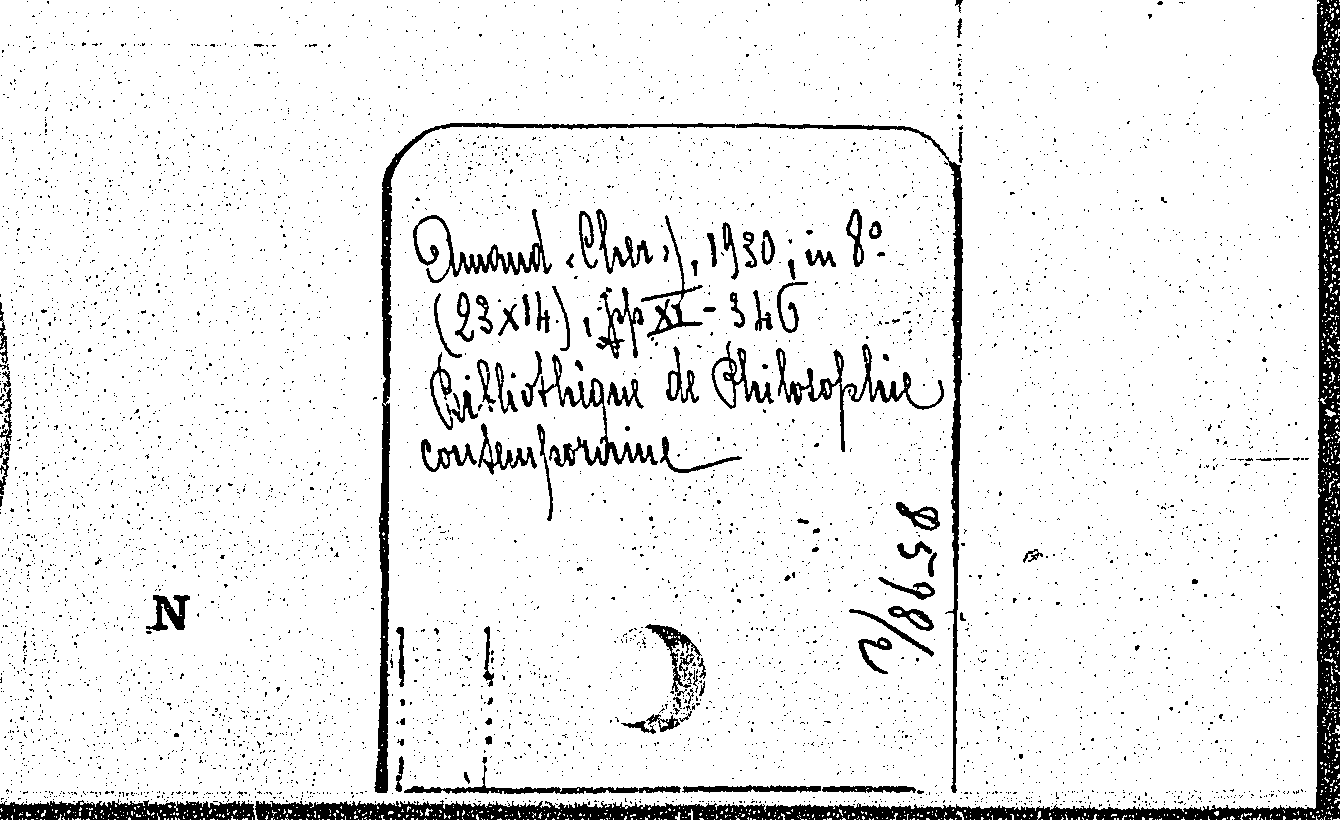 Amand (Cher), 1930; in 8º
(23x14), pp XI - 346
Bibliothèque de Philosophie
contemporaine
N
2/86-58